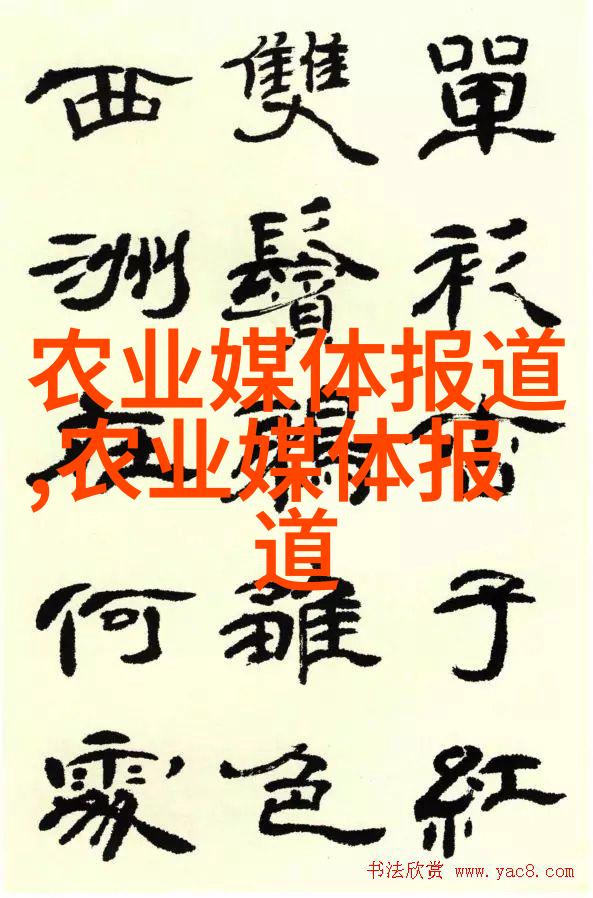 單衫子紅
雙鬢雛色
西洲何處
农业媒体报道
,农业媒体报
道
书法欣赏 www.yac8.com